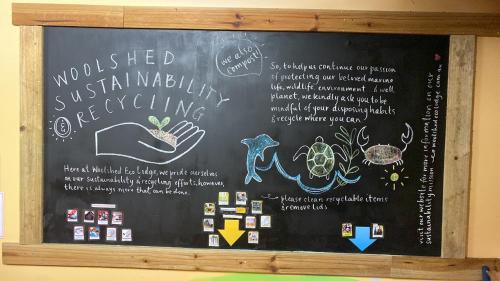 WOOLSHED
SUSTAINABILITY
& RECYCLING
we also
compost!
So, to help us continue our passion
of protecting our beloved marine
life, wildlife, environment & well
planet, we kindly ask you to be
mindful of your disposing habits
& recycle where you can!
Here at Woolshed Eco Lodge, we pride ourselves
on our sustainability & recycling efforts, however,
there is always more that can be done.
please clean recyclable items
& remove lids
visit our website for more information on our
sustainability mission woolshedecolodge.com.au